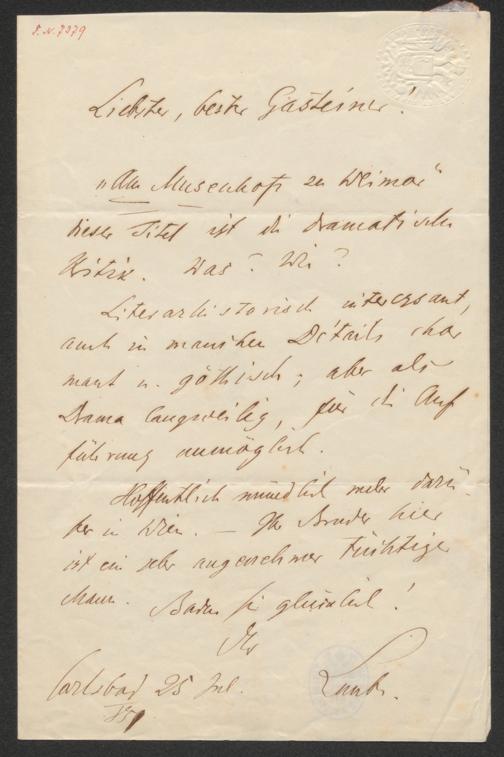 I. N. 7379
Liebster, bester Gasteiner!
"Am Musenhofe zu Weimar"
dieser Titel ist die dramatische
Kritik. Was? Wie?
Literarhistorisch interessant,
auch in manchen Détails char
mant u. göthisch; aber als
Drama langweilig, für die Auf
führung unmöglich.
Hoffentlich mündlich mehr darü-
ber in Wien. — Ihr Bruder hier
ist ein sehr angenehmer tüchtiger
Mann. Baden Sie glücklich!
Ihr
Carlsbad 25 Jul. Laube.